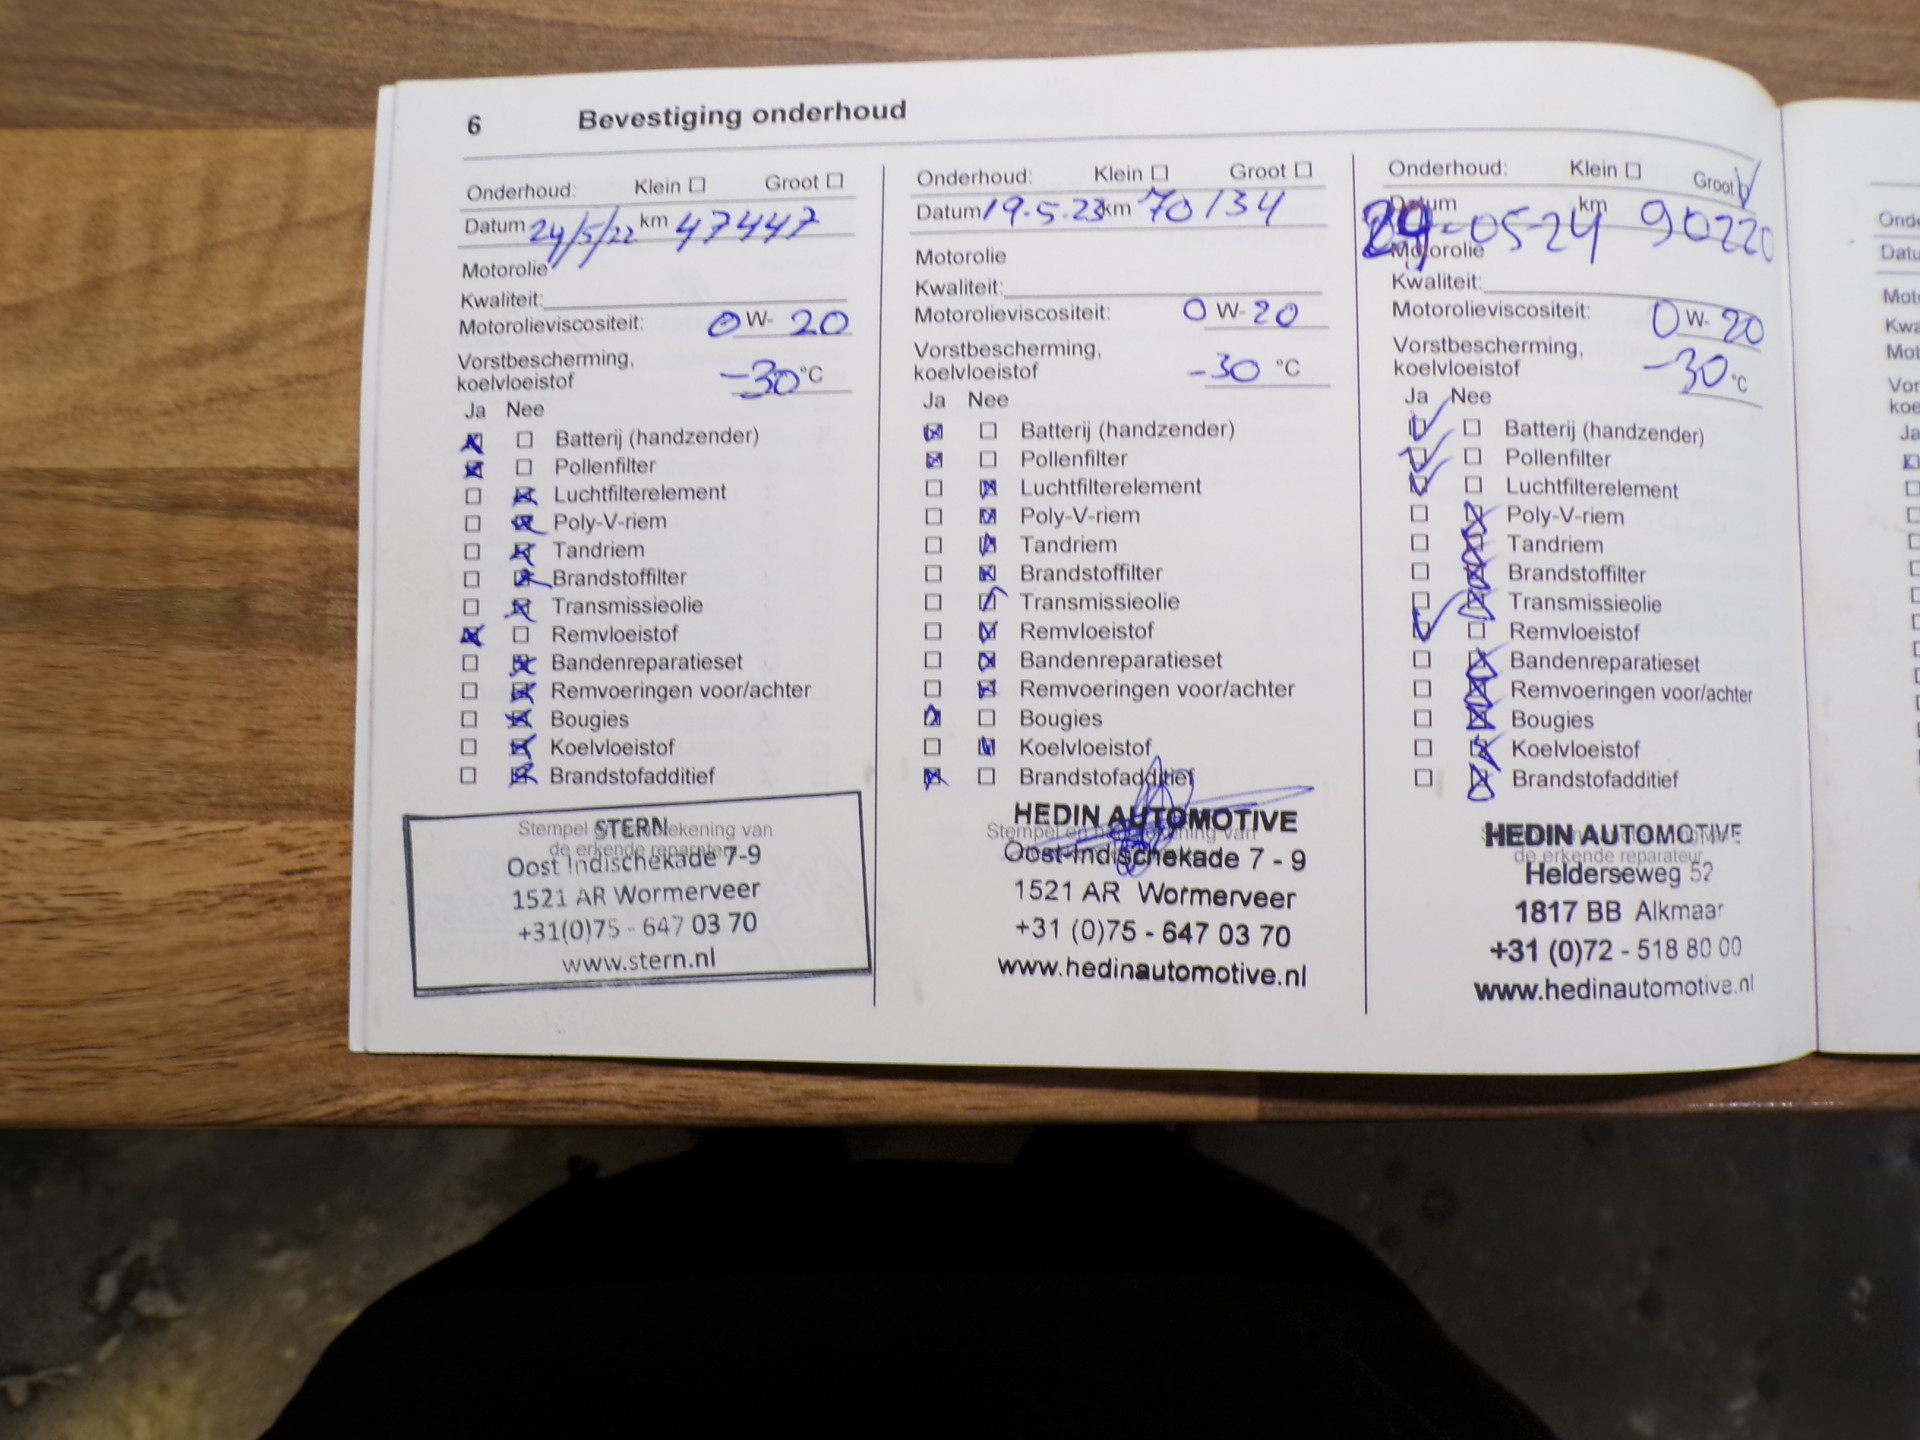 6 Bevestiging onderhoud
Onderhoud: Klein ☐ Groot ☐
Datum 24/5/22 km 47447
Motorolie
Kwaliteit:
Motorolieviscositeit: 0 W- 20
Vorstbescherming,
koelvloeistof -30 °C
Ja Nee
☒ ☐ Batterij (handzender)
☒ ☐ Pollenfilter
☐ ☒ Luchtfilterelement
☐ ☒ Poly-V-riem
☐ ☒ Tandriem
☐ ☒ Brandstoffilter
☐ ☒ Transmissieolie
☒ ☐ Remvloeistof
☐ ☒ Bandenreparatieset
☐ ☒ Remvoeringen voor/achter
☐ ☒ Bougies
☐ ☒ Koelvloeistof
☐ ☒ Brandstofadditief
Stempel en handtekening van
de erkende reparateur
STERN
Oost Indischekade 7-9
1521 AR Wormerveer
+31(0)75 - 647 03 70
www.stern.nl
Onderhoud: Klein ☐ Groot ☐
Datum 19-5-23 km 70134
Motorolie
Kwaliteit:
Motorolieviscositeit: 0 W- 20
Vorstbescherming,
koelvloeistof -30 °C
Ja Nee
☒ ☐ Batterij (handzender)
☒ ☐ Pollenfilter
☐ ☒ Luchtfilterelement
☐ ☒ Poly-V-riem
☐ ☒ Tandriem
☐ ☒ Brandstoffilter
☐ ☒ Transmissieolie
☐ ☒ Remvloeistof
☐ ☒ Bandenreparatieset
☐ ☒ Remvoeringen voor/achter
☒ ☐ Bougies
☐ ☒ Koelvloeistof
☒ ☐ Brandstofadditief
HEDIN AUTOMOTIVE
Stempel en handtekening van
Oost-Indischekade 7 - 9
1521 AR Wormerveer
+31 (0)75 - 647 03 70
www.hedinautomotive.nl
Onderhoud: Klein ☐ Groot ☑
Datum 29-05-24 km 90220
Motorolie
Kwaliteit:
Motorolieviscositeit: 0 W- 20
Vorstbescherming,
koelvloeistof -30 °C
Ja Nee
☑ ☐ Batterij (handzender)
☑ ☐ Pollenfilter
☑ ☐ Luchtfilterelement
☐ ☒ Poly-V-riem
☐ ☒ Tandriem
☐ ☒ Brandstoffilter
☐ ☒ Transmissieolie
☑ ☐ Remvloeistof
☐ ☒ Bandenreparatieset
☐ ☒ Remvoeringen voor/achter
☐ ☒ Bougies
☐ ☒ Koelvloeistof
☐ ☒ Brandstofadditief
HEDIN AUTOMOTIVE
de erkende reparateur
Helderseweg 52
1817 BB Alkmaar
+31 (0)72 - 518 80 00
www.hedinautomotive.nl
Ja